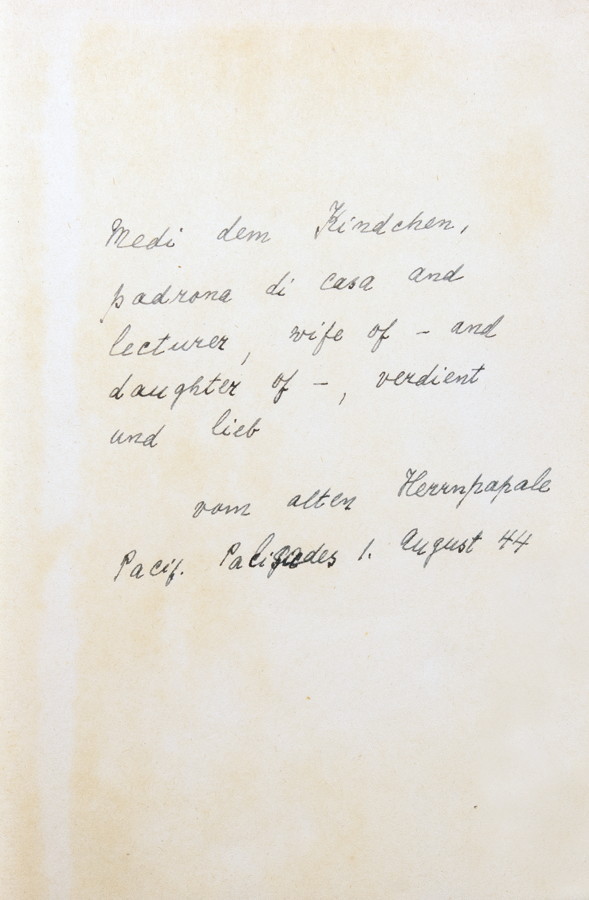 Medi dem Kindchen,
padrona di casa and
lecturer, wife of – and
daughter of –, verdient
und lieb
vom alten Herrnpapale
Pacif. Palisades 1. August 44